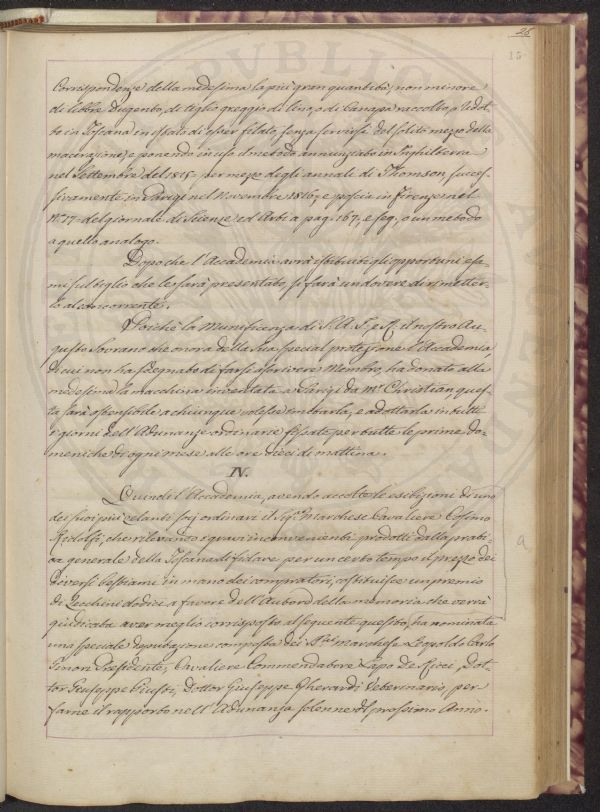 26
15
Corrispondenze della medesima la più gran quantità, non minore
di libbre dugento, di tiglio greggio di lino, o di Canapa raccolto, e ridot-
to in Toscana in istato di esser filato, senza servirsi del solito mezzo della
macerazione, e ponendo in uso il metodo annunziato in Inghilterra
nel Settembre del 1815 per mezzo degli annali di Thomson, succes-
sivamente in Parigi nel Novembre 1816, e poscia in Firenze nel
N.º 17 del giornale di Scienze ed Arti a pag. 167, e seg., o un metodo
a quello analogo.
Dopo che l'Accademia avrà istituiti gli opportuni esa-
mi sul tiglio che le sarà presentato, si farà un dovere di rimetter-
lo al concorrente.
Poichè la Munificenza di S. A. I. e R. il nostro Au-
gusto Sovrano che onora della Sua special protezione l'Accademia,
di cui non ha sdegnato di farsi ascrivere Membro, ha donato alla
medesima la macchina inventata a Parigi da Mr. Christian, ques-
ta sarà ostensibile a chiunque volesse imitarla, e adottarla in tutti
i giorni dell'Adunanze ordinarie fissate per tutte le prime do-
meniche di ogni mese alle ore dieci di mattina.
IV.
Quindi l'Accademia, avendo accolte le esibizioni di uno
dei suoi più zelanti socj ordinari il Sig.r Marchese Cavaliere Cosimo
Ridolfi, che rilevando i gravi inconvenienti prodotti dalla prati-
ca generale della Toscana di fidare per un certo tempo il prezzo dei
diversi bestiami in mano dei compratori, costituisce un premio
di Zecchini dodici a favore dell'Autore della memoria che verrà
giudicata aver meglio corrisposto al seguente quesito, ha nominata
una speciale deputazione composta dei SS.ri Marchese Leopoldo Carlo
Ginori Presidente, Cavaliere Commendatore Lapo De Ricci, Dot-
tor Giuseppe Giusti, Dottor Giuseppe Gherardi Veterinario, per
farne il rapporto nell'Adunanza solenne del prossimo Anno.
a